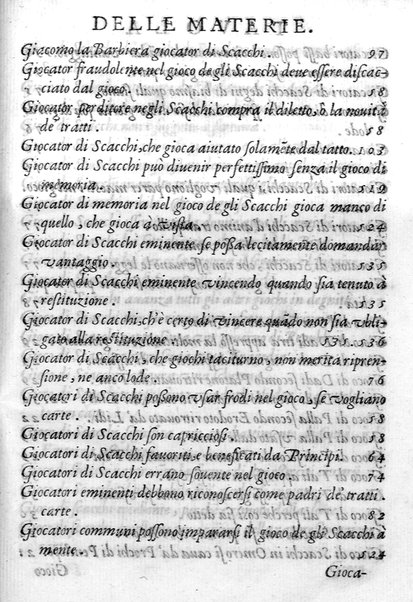 DELLE MATERIE.
Giacomo la Barbiera giocator di Scacchi. 97
Giocator fraudolente nel gioco de gli Scacchi deue essere discac-
ciato dal gioco. 58
Giocator perditore negli Scacchi compra il diletto, ò la nouità
de tratti. 18
Giocator di Scacchi, che gioca aiutato solamẽte dal tatto. 103
Giocator di Scacchi può diuenir perfettissimo senza il gioco di
memoria. 119
Giocator di memoria nel gioco de gli Scacchi gioca manco di
quello, che gioca à vista.
Giocator di Scacchi eminente se possa lecitamente domandar
vantaggio. 135
Giocator di Scacchi eminente vincendo quando sia tenuto à
restituzione. 131
Giocator di Scacchi, ch'è certo di vincere quãdo non sia obli-
gato alla restituzione. 131. 136
Giocator di Scacchi, che giochi taciturno, non merita ripren-
sione, ne anco lode. 76
Giocatori di Scacchi possono vsar frodi nel gioco, se vogliano
carte. 58
Giocatori di Scacchi son capricciosi. 58
Giocatori di Scacchi fauoriti e beneficati da Principi. 64
Giocatori di Scacchi errano souente nel gioco. 74
Giocatori eminenti debbono riconoscersi come padri de tratti.
carte. 82
Giocatori communi possono impararsi il gioco de gli Scacchi à
mente. 124
Gioca-